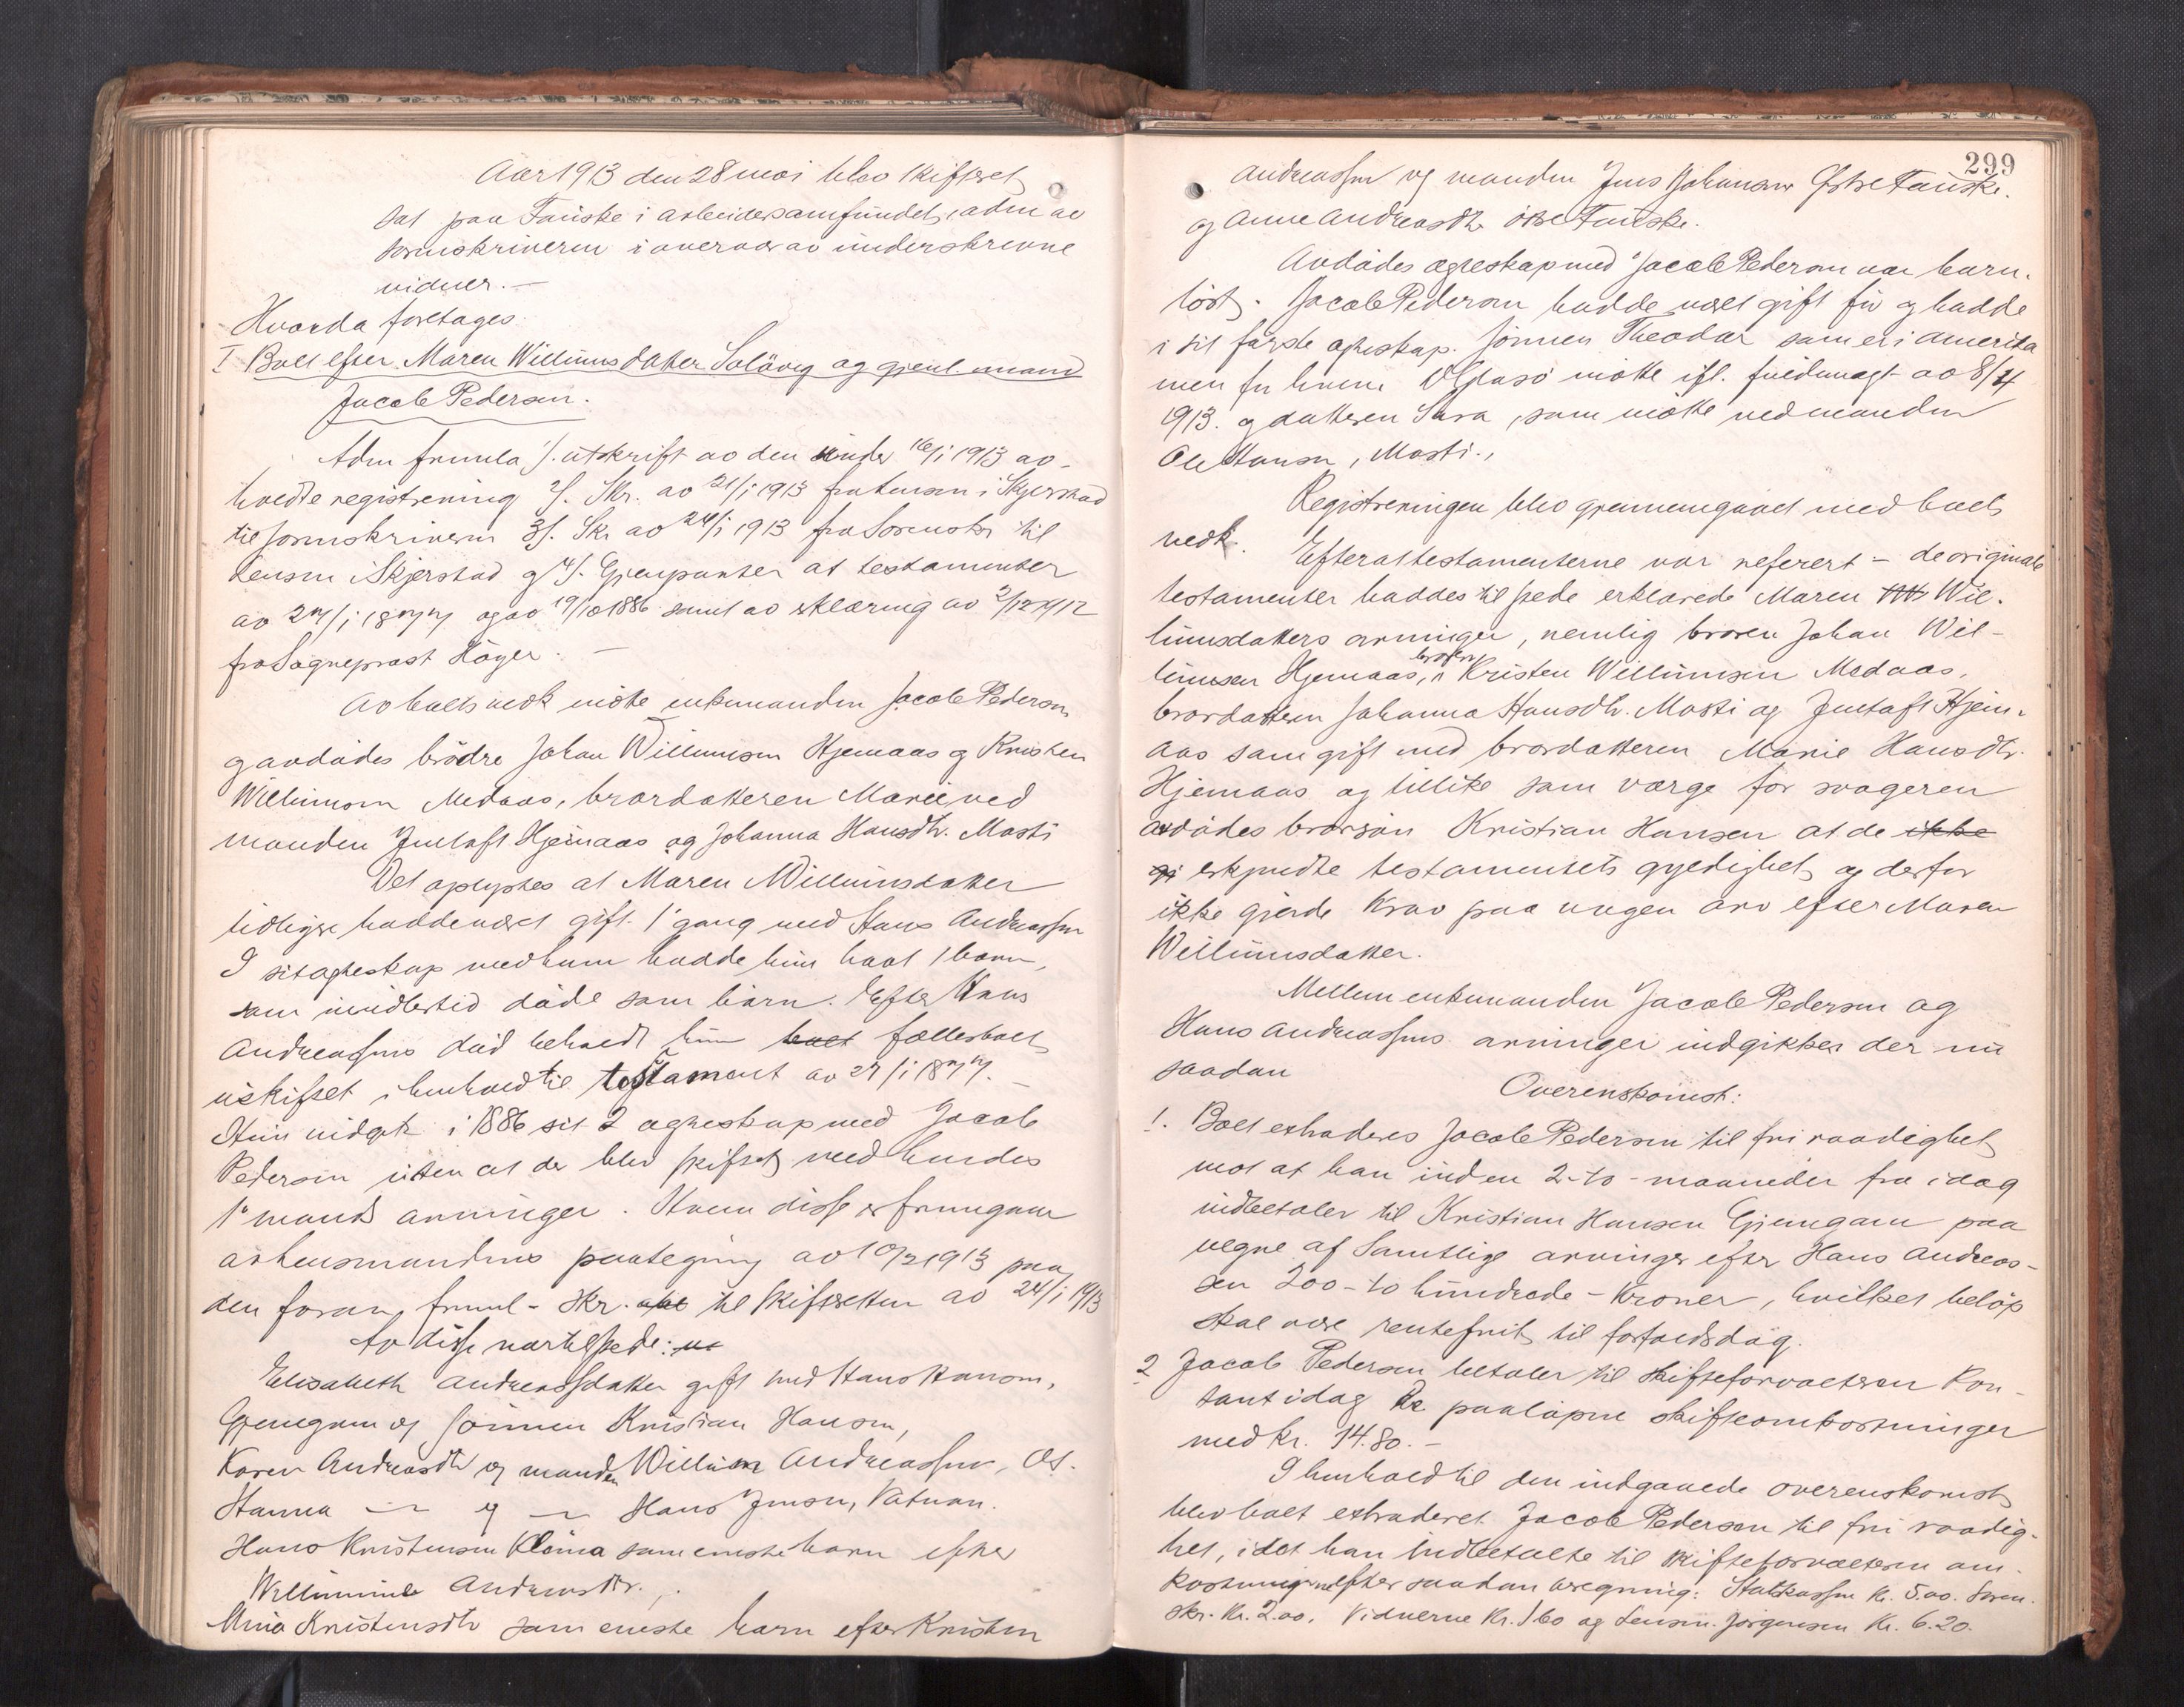 Aar 1913 den 28 mai blev skifteret
sat paa Fauske i arbeidersamfundet, adm av
sorenskriveren i overvær av underskrevne
vidner. —
Hvorda foretages
I Boet efter Maren Willumsdatter Solövig og gjenl. mand
Jacob Pedersen.
Adm fremla 1/. utskrift av den under 16/1 1913 av-
holdte registrering 2/. Skr. av 21/1 1913 fra lensm. i Skjerstad
til sorenskriveren 3/. Skr av 24/1 1913 fra Sorenskr til
lensm i Skjerstad og 4/. Gjenparter at testamenter
av 27/1 1877 og av 19/10 1886 samt av erklæring av 2/12 1912
fra Sogneprest Höyer. —
Av boets vedk mötte enkemanden Jacob Pedersen
og avdödes brödre Johan Willumsen Hjemaas og Kristen
Willumsen Medaas, brordatteren Marie ved
manden Gustaf Hjemaas og Johanna Hansdtr. Mosti
Det oplystes at Maren Willumsdatter
tidligere hadde været gift 1ste gang med Hans Andreassen
I sit ægteskap med ham hadde hun havt 1 barn,
som imidlertid döde som barn. Efter Hans
Andreassens död beholdt hun boet fællesboet
uskiftet i henhold til testament av 27/1 1877. —
Hun indgik i 1886 sit 2 ægteskap med Jacob
Pedersen uten at der blev skiftet med hendes
1ste mands arvinger. Hvem disse er fremgaar
av lensmandens paategning av 10/2 1913 paa
den foran freml- skr. til skifteretten av 24/1 1913
Av disse var tilstede:
Elisabeth Andreassdatter gift med Hans Hansen,
Gjemgam og sönnen Kristian Hansen,
Karen Andreasdtr og manden Willum Andreassen, Os.
Hanna — og — Hans Jensen, Vatnan.
Hans Kristensen Kloma som eneste barn efter
Willumine Andreasdtr.,
Mina Kristensdtr som eneste barn efter Kristen
299
Andreassen og manden Jens Johansen Östre Fauske.
og Anne Andreasdtr östre Fauske.
Avdödes ægteskap med Jacob Pedersen var barn-
löst. Jacob Pedersen hadde været gift för og hadde
i sit förste ægteskap. Sönnen Theodor som er i Amerika
men for hvem O Glasö mötte ifl. fuldmagt av 8/4
1913. og datteren Sara, som mötte ved manden
Ole Hansen, Mosti.,
Registreringen blev gjennemgaaet med boets
vedk. Efter at testamenterne var referert – de originale
testamenter haddes tilstede erklærede Maren Wil-
lumsdatters arvinger, nemlig broren Johan Wil-
lumsen Hjemaas, broren Kristen Willumsen Medaas,
brordatteren Johanna Hansdtr. Mosti og Gustaf Hjem-
aas som gift med brordatteren Marie Hansdtr.
Hjemaas og tillike som værge for svogeren
avdödes brorsön Kristian Hansen at de ikke
erkjendte testamentets gyldighet og derfor
ikke gjorde krav paa nogen arv efter Maren
Willumsdatter.
Mellem enkemanden Jacob Pedersen og
Hans Andreassens arvinger indgikkes der nu
saadan
Overenskomst:
1. Boet extraderes Jacob Pedersen til fri raadighet
mot at han inden 2-to-maaneder fra idag
indbetaler til Kristian Hansen Gjemgam paa
vegne af samtlige arvinger efter Hans Andreas-
sen 200 – to hundrede – kroner, hvilket belöp
skal være rentefrit til forfaldsdag.
2 Jacob Pedersen betaler til skifteforvalteren kon-
tant idag de paalöpne skifteomkostninger
med kr. 14.80. –
I henhold til den indgaaede overenskomst
blev boet extraderet Jacob Pedersen til fri raadig-
het, idet han indbetalte til skifteforvalteren om-
kostningerne efter saadan beregning: Statskassen kr. 5.00. Soren-
skr. kr. 2.00. Vidnerne kr. 1.60 og Lensm. Jörgensen kr. 6.20.